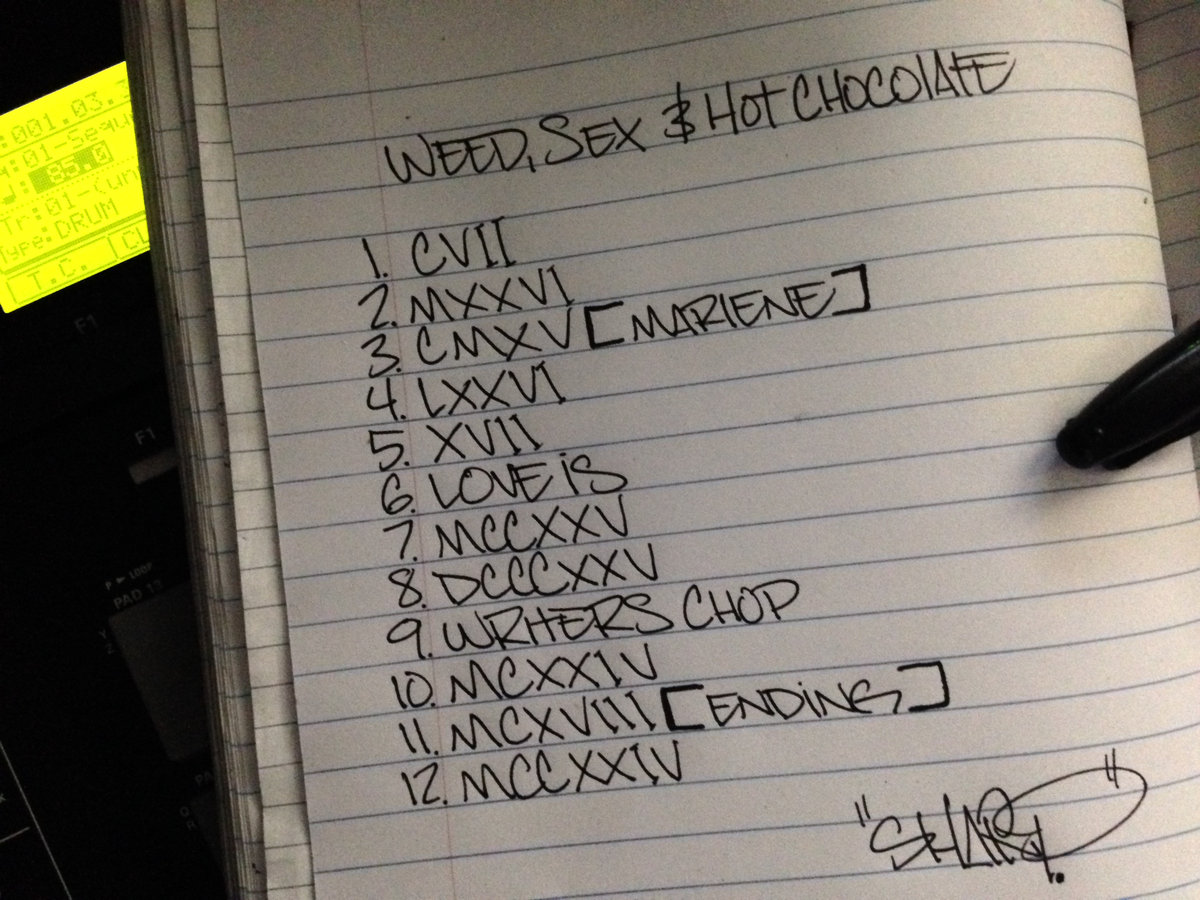 :001.03.3
:01-Sequ
: 85.0
Tr:01-(un
Type:DRUM
T.C.
F1
F1
PAD 13
WEED, SEX & HOT CHOCOLATE
1. CVII
2. MXXVI
3. CMXV [MARLENE]
4. LXXVI
5. XVII
6. LOVE iS
7. MCCXXV
8. DCCCXXV
9. WRITERS CHOP
10. MCXXIV
11. MCXVIII [ENDiNGS]
12. MCCXXIV